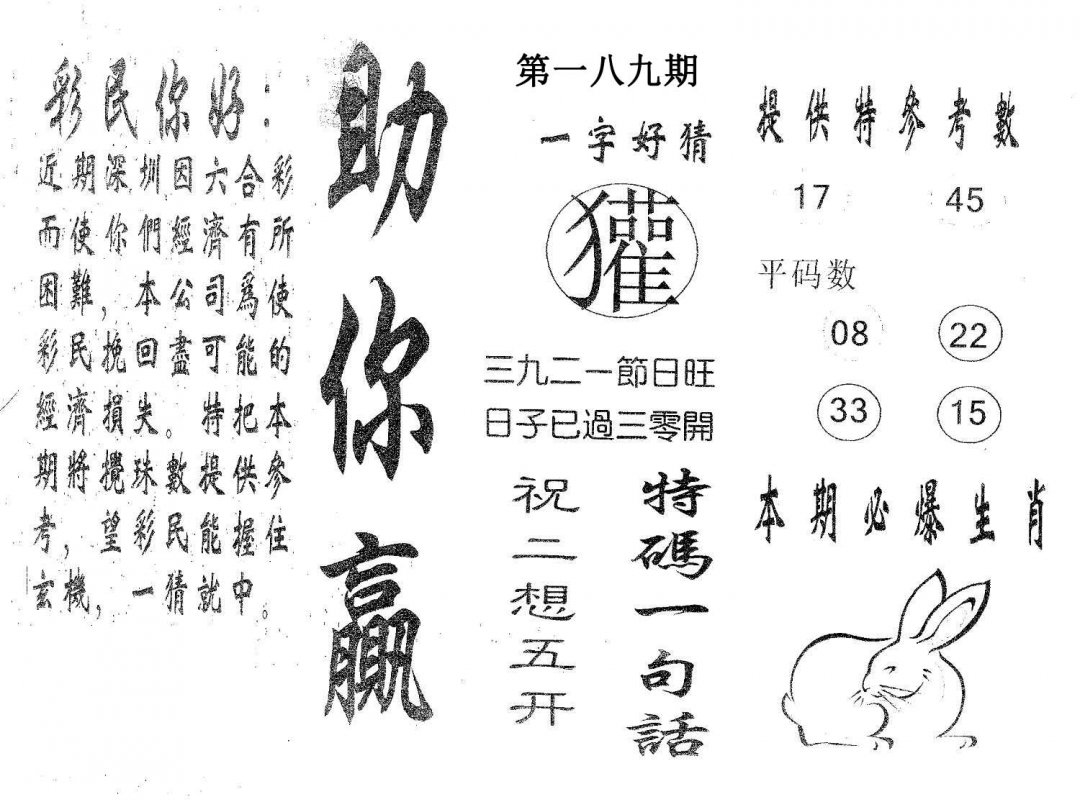 彩民你好：
近期深圳因六合彩
而使你們經濟有所
困難，本公司爲使
彩民挽回盡可能的
經濟損失。特把本
期將攪珠數提供參
考，望彩民能握住
玄機，一猜就中。
助你贏
第一八九期
一字好猜
獾
三九二一節日旺
日子已過三零開
特碼一句話
祝二想五开
提供特參考數
17 45
平码数
08 22
33 15
本期必爆生肖